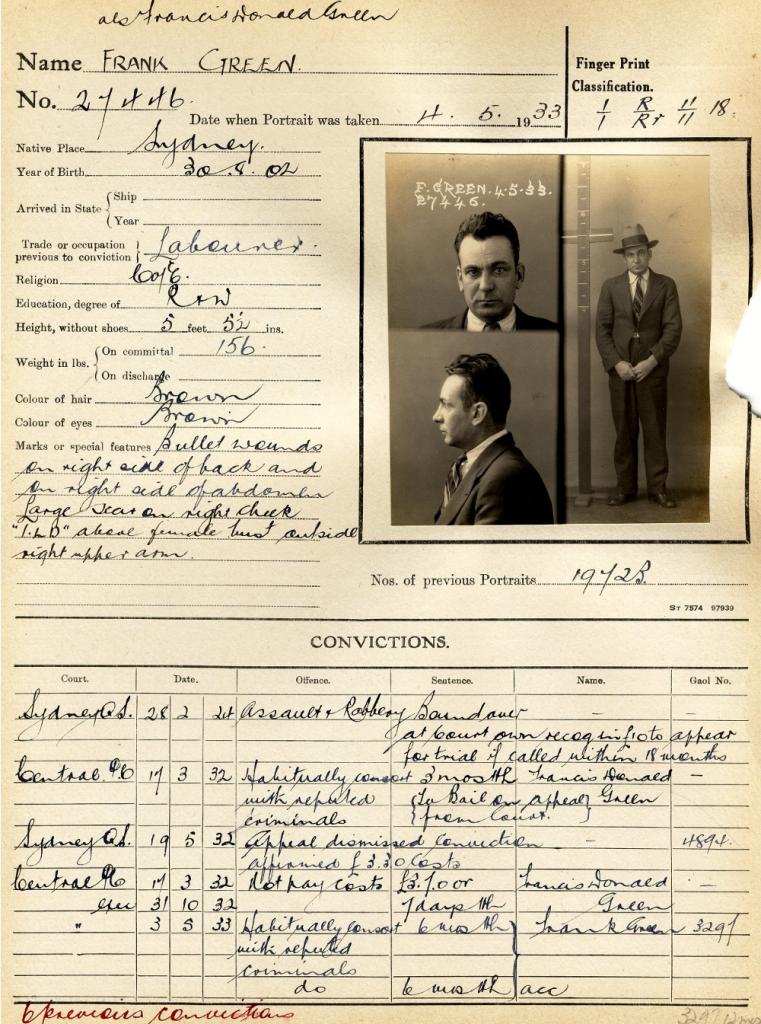 als Francis Donald Green
Name FRANK GREEN.
Finger Print
Classification.
1/1 R/Rr 11/11 18.
No. 27446.
Date when Portrait was taken 4. 5. 1933
Native Place Sydney.
Year of Birth 30. 8. 02
Arrived in State { Ship
Year
Trade or occupation
previous to conviction } Labourer.
Religion C of E.
Education, degree of R & W
Height, without shoes 5 feet 5½ ins.
Weight in lbs. { On committal 156
On discharge
Colour of hair Brown
Colour of eyes Brown
Marks or special features Bullet wounds
on right side of back and
on right side of abdomen
Large scar on right cheek
above female bust outside
right upper arm.
F. GREEN. 4-5-33.
27446.
Nos. of previous Portraits 1972B.
ST 7574 97939
CONVICTIONS.
Court. Date. Offence. Sentence. Name. Gaol No.
Sydney Q.S. 28 2 24 Assault & Robbery Boundover - -
at Court own recog in £10 to appear
for trial if called within 18 months
Central P.C 17 3 32 Habitually consort 3 mos HL Francis Donald -
with reputed {To Bail on appeal} Green
criminals {from Court.}
Sydney Q.S. 19 5 32 Appeal dismissed conviction - 4894.
affirmed £3.3.0 Costs
Central P.C 17 3 32 Not pay costs £3.7.0 or Francis Donald -
exec 31 10 32 7 days HL Green
" 3 5 33 Habitually consort 6 mos HL Frank Green 3297
with reputed
criminals
do 6 mos HL acc
6 previous convictions
3297